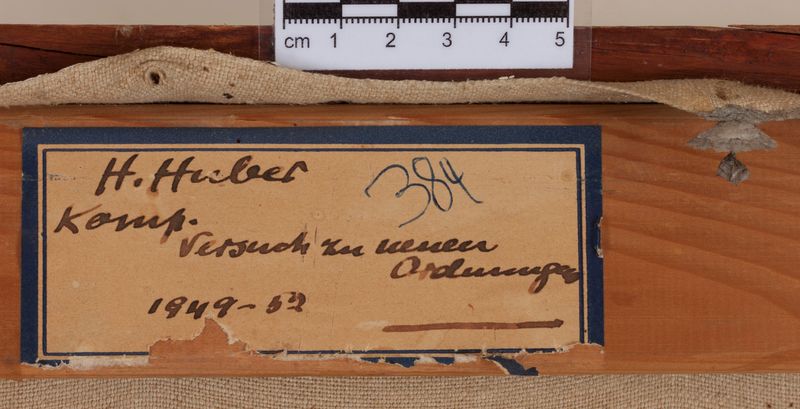 cm 1 2 3 4 5
H. Huber
384
Komp.
Versuch zu neuen
Ordnungen
1949-52